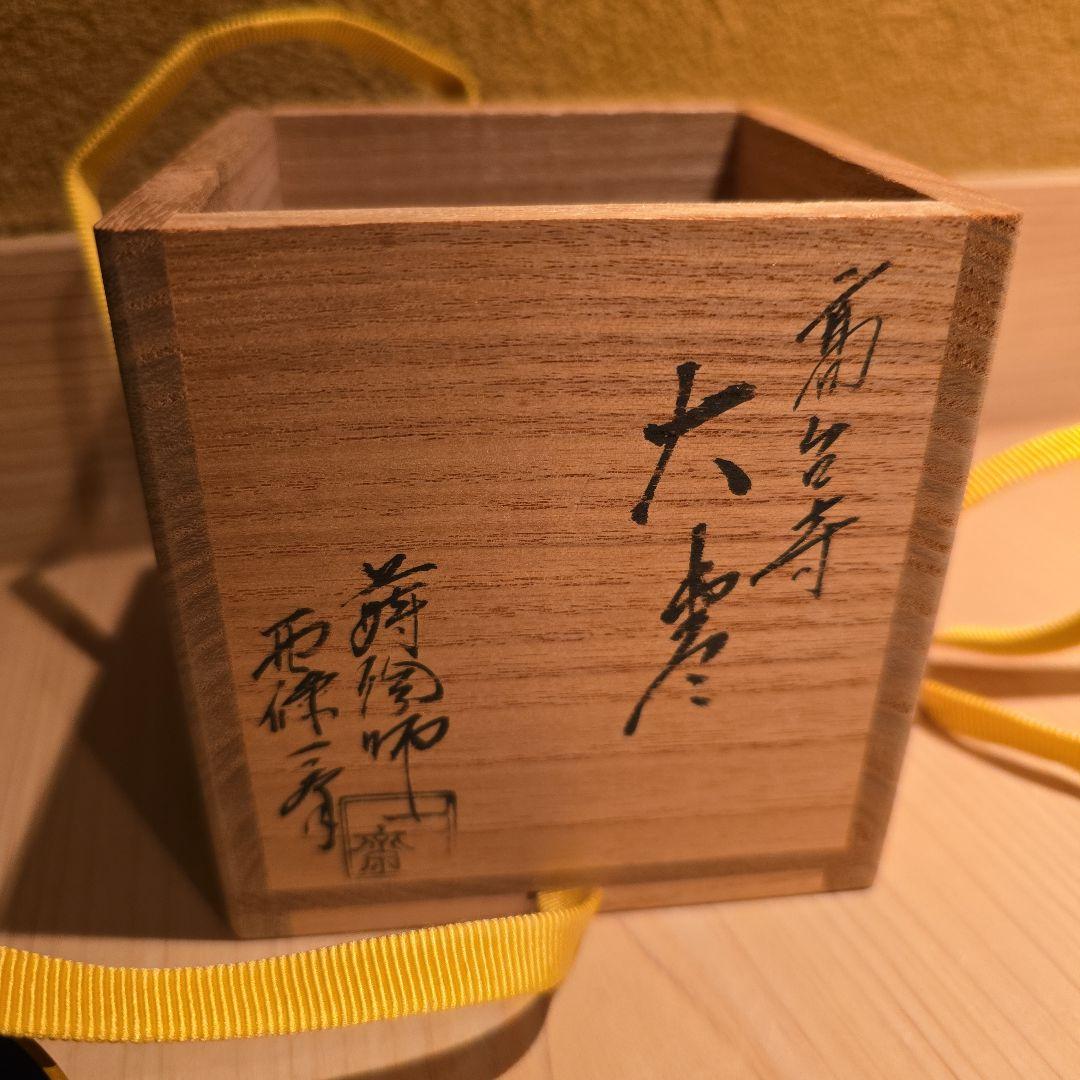 高台寺
大棗
蒔絵師
西條一斎
一斎